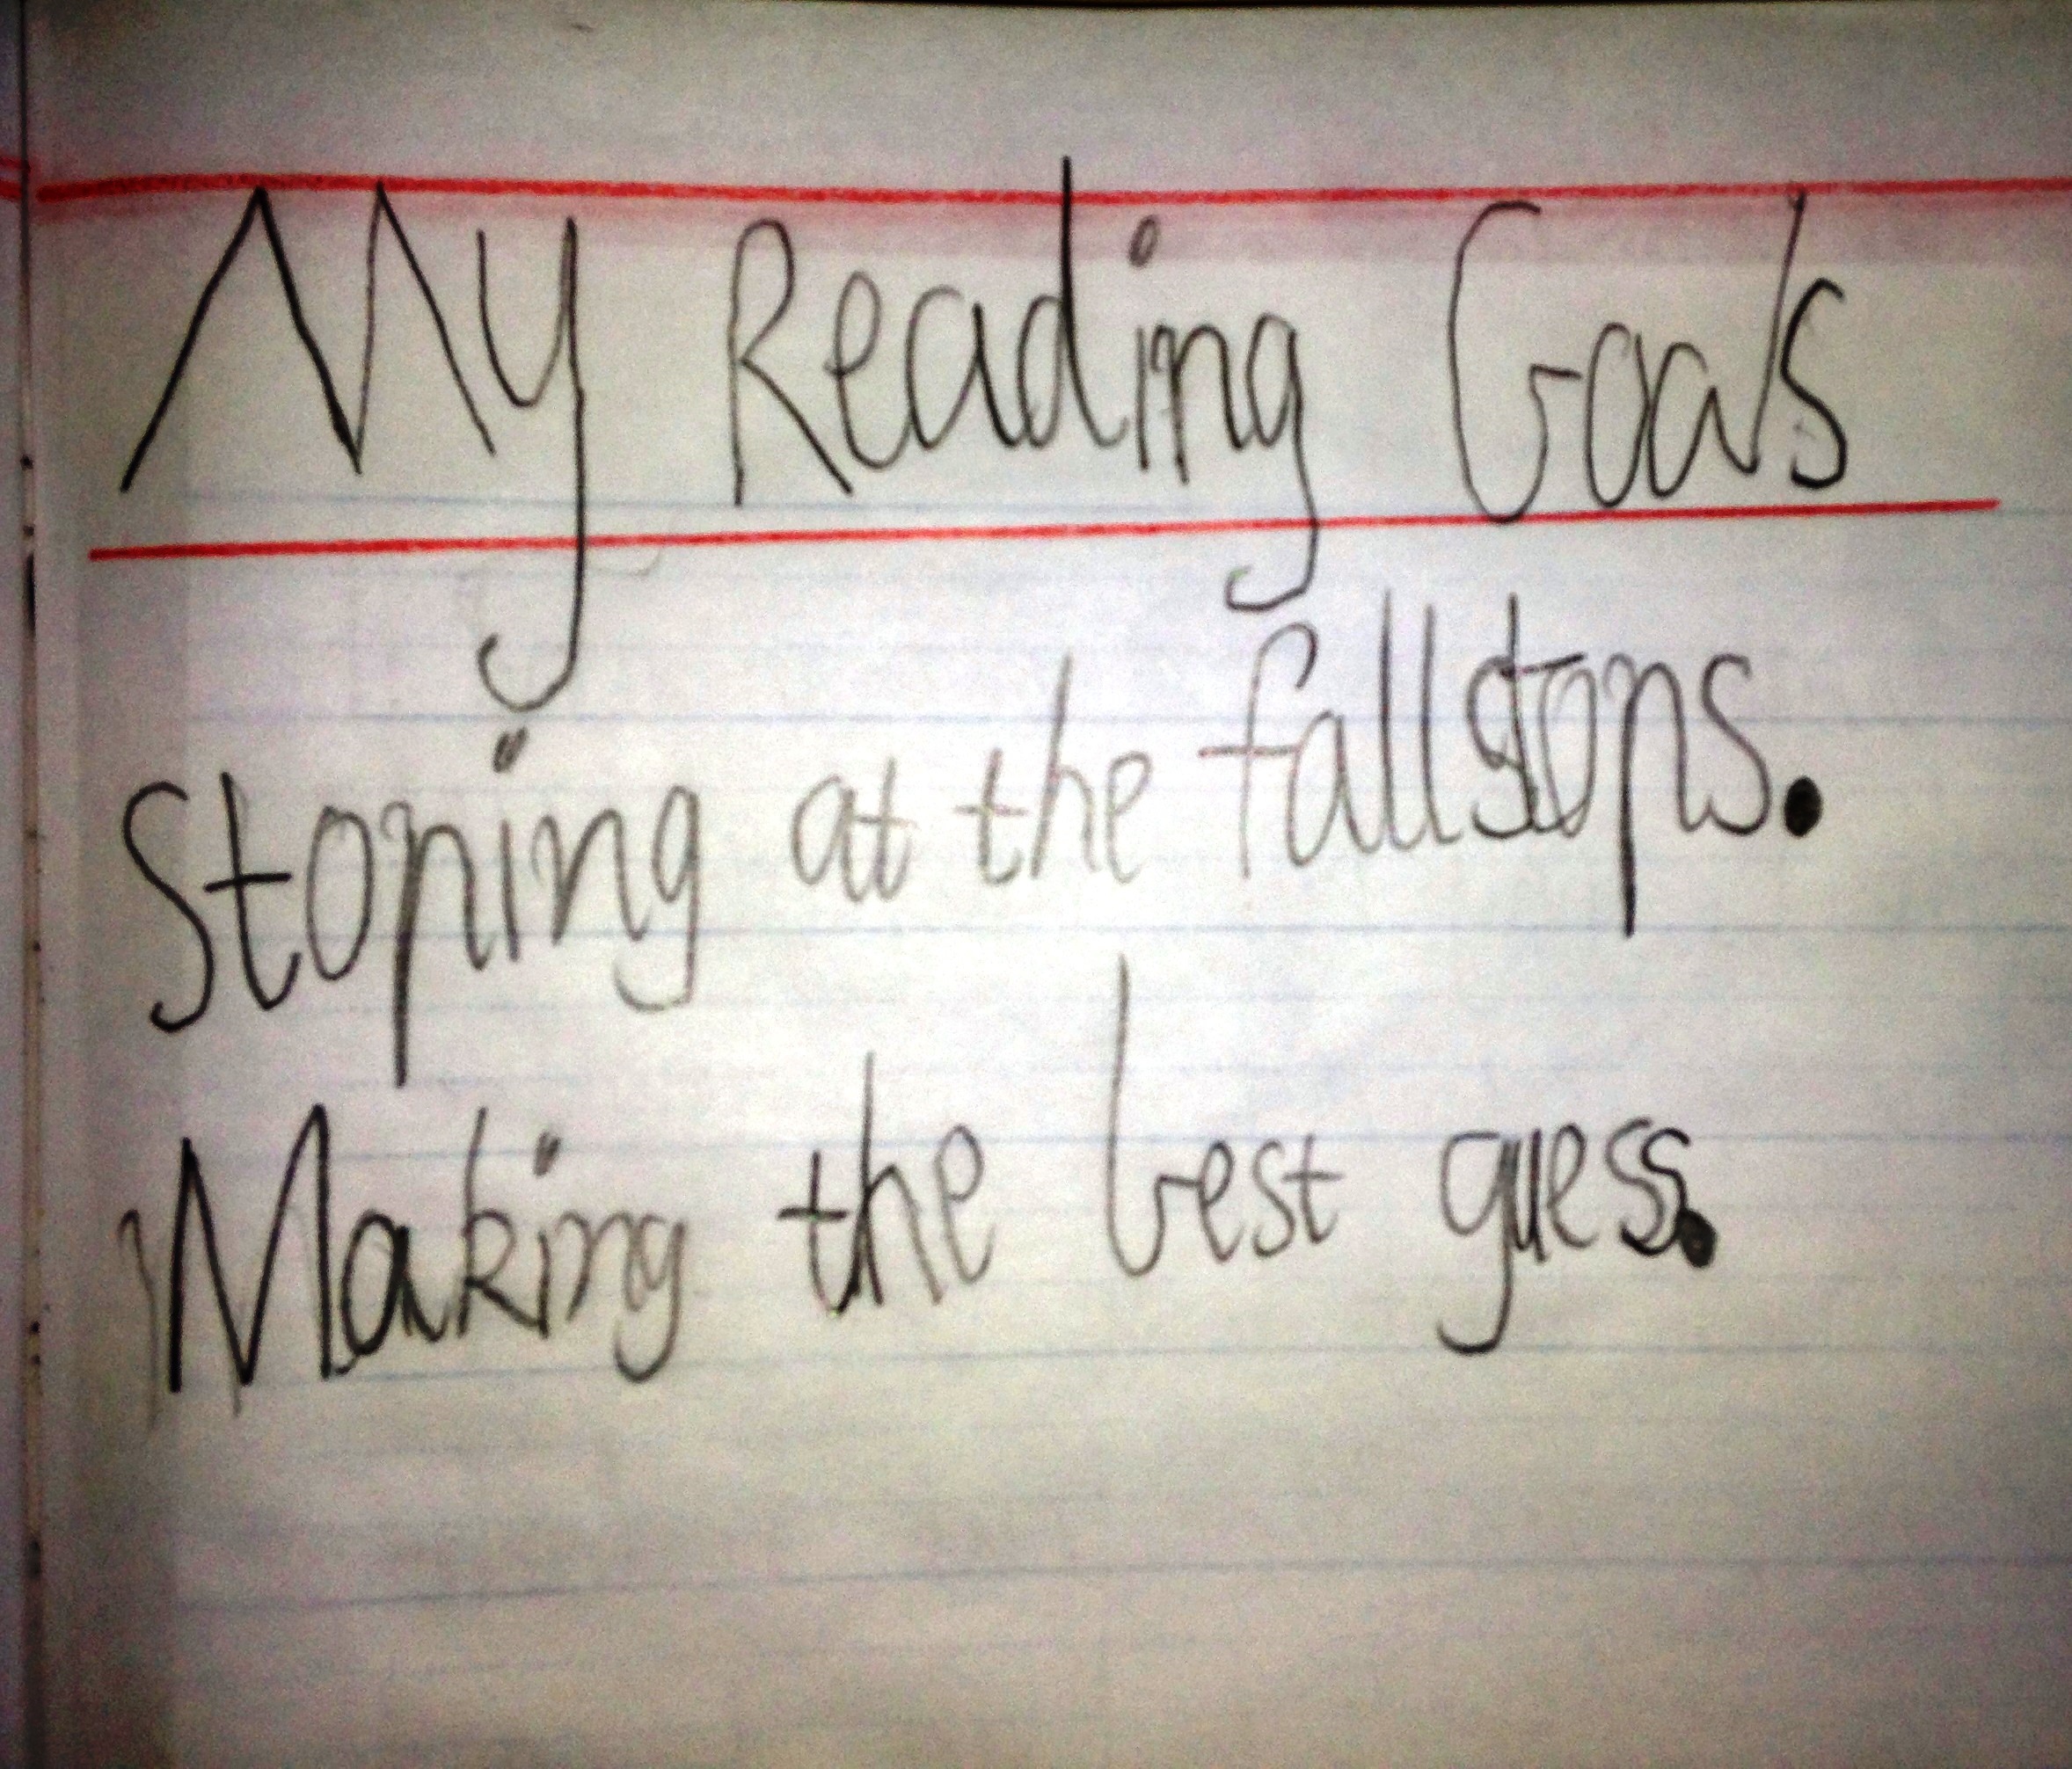 My Reading Goals
Stoping at the fallstops.
Making the best guess.